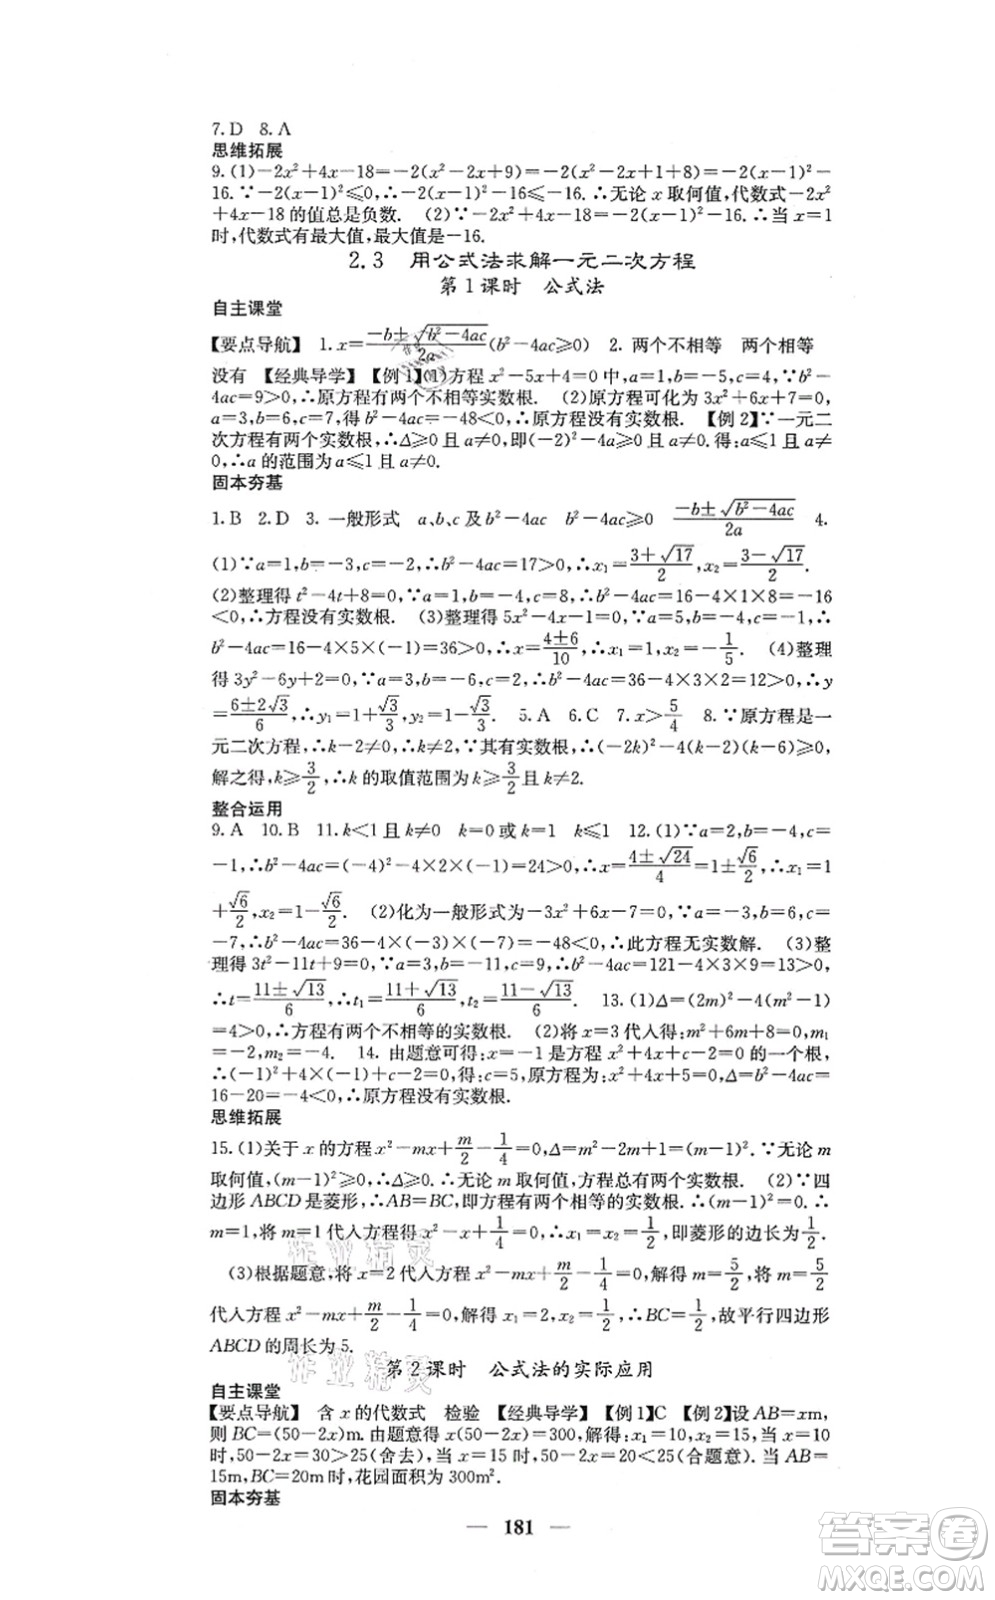 7.D 8.A
思维拓展
9.(1)-2x²+4x-18=-2(x²-2x+9)=-2(x²-2x+1+8)=-2(x-1)²-
16.∵-2(x-1)²⩽0,∴-2(x-1)²-16⩽-16.∴无论x取何值,代数式-2x²
+4x-18的值总是负数. (2)∵-2x²+4x-18=-2(x-1)²-16.∴当x=1
时,代数式有最大值,最大值是-16.
2.3 用公式法求解一元二次方程
第1课时 公式法
自主课堂
【要点导航】 1.x=\frac{-b±\sqrt{b²-4ac}}{2a}(b²-4ac⩾0) 2.两个不相等 两个相等
没有 【经典导学】【例1】(1)方程x²-5x+4=0中,a=1,b=-5,c=4,∵b²-
4ac=9>0,∴原方程有两个不相等实数根. (2)原方程可化为3x²+6x+7=0,
a=3,b=6,c=7,得b²-4ac=-48<0,∴原方程没有实数根. 【例2】∵一元二
次方程有两个实数根,∴Δ⩾0且a≠0,即(-2)²-4a⩾0且a≠0.得:a⩽1且a≠
0,∴a的范围为a⩽1且a≠0.
固本夯基
1.B 2.D 3.一般形式 a、b、c及b²-4ac b²-4ac⩾0 \frac{-b±\sqrt{b²-4ac}}{2a} 4.
(1)∵a=1,b=-3,c=-2,∴b²-4ac=17>0,∴x₁=\frac{3+\sqrt{17}}{2},x₂=\frac{3-\sqrt{17}}{2}.
(2)整理得t²-4t+8=0,∵a=1,b=-4,c=8,∴b²-4ac=16-4×1×8=-16
<0,∴方程没有实数根. (3)整理得5x²-4x-1=0,∵a=5,b=-4,c=-1,∴
b²-4ac=16-4×5×(-1)=36>0,∴x=\frac{4±6}{10},∴x₁=1,x₂=-\frac{1}{5}. (4)整理
得3y²-6y+2=0,∵a=3,b=-6,c=2,∴b²-4ac=36-4×3×2=12>0,∴y
=\frac{6±2\sqrt{3}}{6},∴y₁=1+\frac{\sqrt{3}}{3},y₂=1-\frac{\sqrt{3}}{3}. 5.A 6.C 7.x>\frac{5}{4} 8.∵原方程是一
元二次方程,∴k-2≠0,∴k≠2,∵其有实数根,∴(-2k)²-4(k-2)(k-6)⩾0,
解之得,k⩾\frac{3}{2},∴k的取值范围为k⩾\frac{3}{2}且k≠2.
整合运用
9.A 10.B 11.k<1且k≠0 k=0或k=1 k⩽1 12.(1)∵a=2,b=-4,c=
-1,∴b²-4ac=(-4)²-4×2×(-1)=24>0,∴x=\frac{4±\sqrt{24}}{4}=1±\frac{\sqrt{6}}{2},∴x₁=1
+\frac{\sqrt{6}}{2},x₂=1-\frac{\sqrt{6}}{2}. (2)化为一般形式为-3x²+6x-7=0,∵a=-3,b=6,c=
-7,∴b²-4ac=36-4×(-3)×(-7)=-48<0,∴此方程无实数解. (3)整
理得3t²-11t+9=0,∵a=3,b=-11,c=9,∴b²-4ac=121-4×3×9=13>0,
∴t=\frac{11±\sqrt{13}}{6},∴t₁=\frac{11+\sqrt{13}}{6},t₂=\frac{11-\sqrt{13}}{6}. 13.(1)Δ=(2m)²-4(m²-1)
=4>0,∴方程有两个不相等的实数根. (2)将x=3代入得:m²+6m+8=0,m₁
=-2,m₂=-4. 14.由题意可得:x=-1是方程x²+4x+c=0的一个根,
∴(-1)²+4×(-1)+c=0,得:c=3,原方程为x²+4x+5=0,Δ=b²-4ac=
16-20=-4<0,∴原方程没有实数根.
思维拓展
15.(1)关于x的方程x²-mx+\frac{m}{2}-\frac{1}{4}=0,Δ=m²-2m+1=(m-1)².∵无论m
取何值,(m-1)²⩾0,∴Δ⩾0.∴无论m取何值,方程总有两个实数根. (2)∵四
边形ABCD是菱形,∴AB=BC,即方程有两个相等的实数根.∴(m-1)²=0.∴
m=1,将m=1代入方程得x²-x+\frac{1}{4}=0,∴x₁=x₂=\frac{1}{2},即菱形的边长为\frac{1}{2}.
(3)根据题意,将x=2代入方程x²-mx+\frac{m}{2}-\frac{1}{4}=0,解得m=\frac{5}{2},将m=\frac{5}{2}
代入方程x²-mx+\frac{m}{2}-\frac{1}{4}=0,解得x₁=2,x₂=\frac{1}{2},∴BC=\frac{1}{2},故平行四边形
ABCD的周长为5.
第2课时 公式法的实际应用
自主课堂
【要点导航】 含x的代数式 检验 【经典导学】【例1】C 【例2】设AB=xm,
则BC=(50-2x)m.由题意得:x(50-2x)=300,解得:x₁=10,x₂=15,当x=10
时,50-2x=30>25(舍去),当x=15时,50-2x=20<25(合题意).当AB=
15m,BC=20m时,花园面积为300m².
固本夯基
— 181 —
作业精灵
作业精灵
答案卷
MXQE.COM